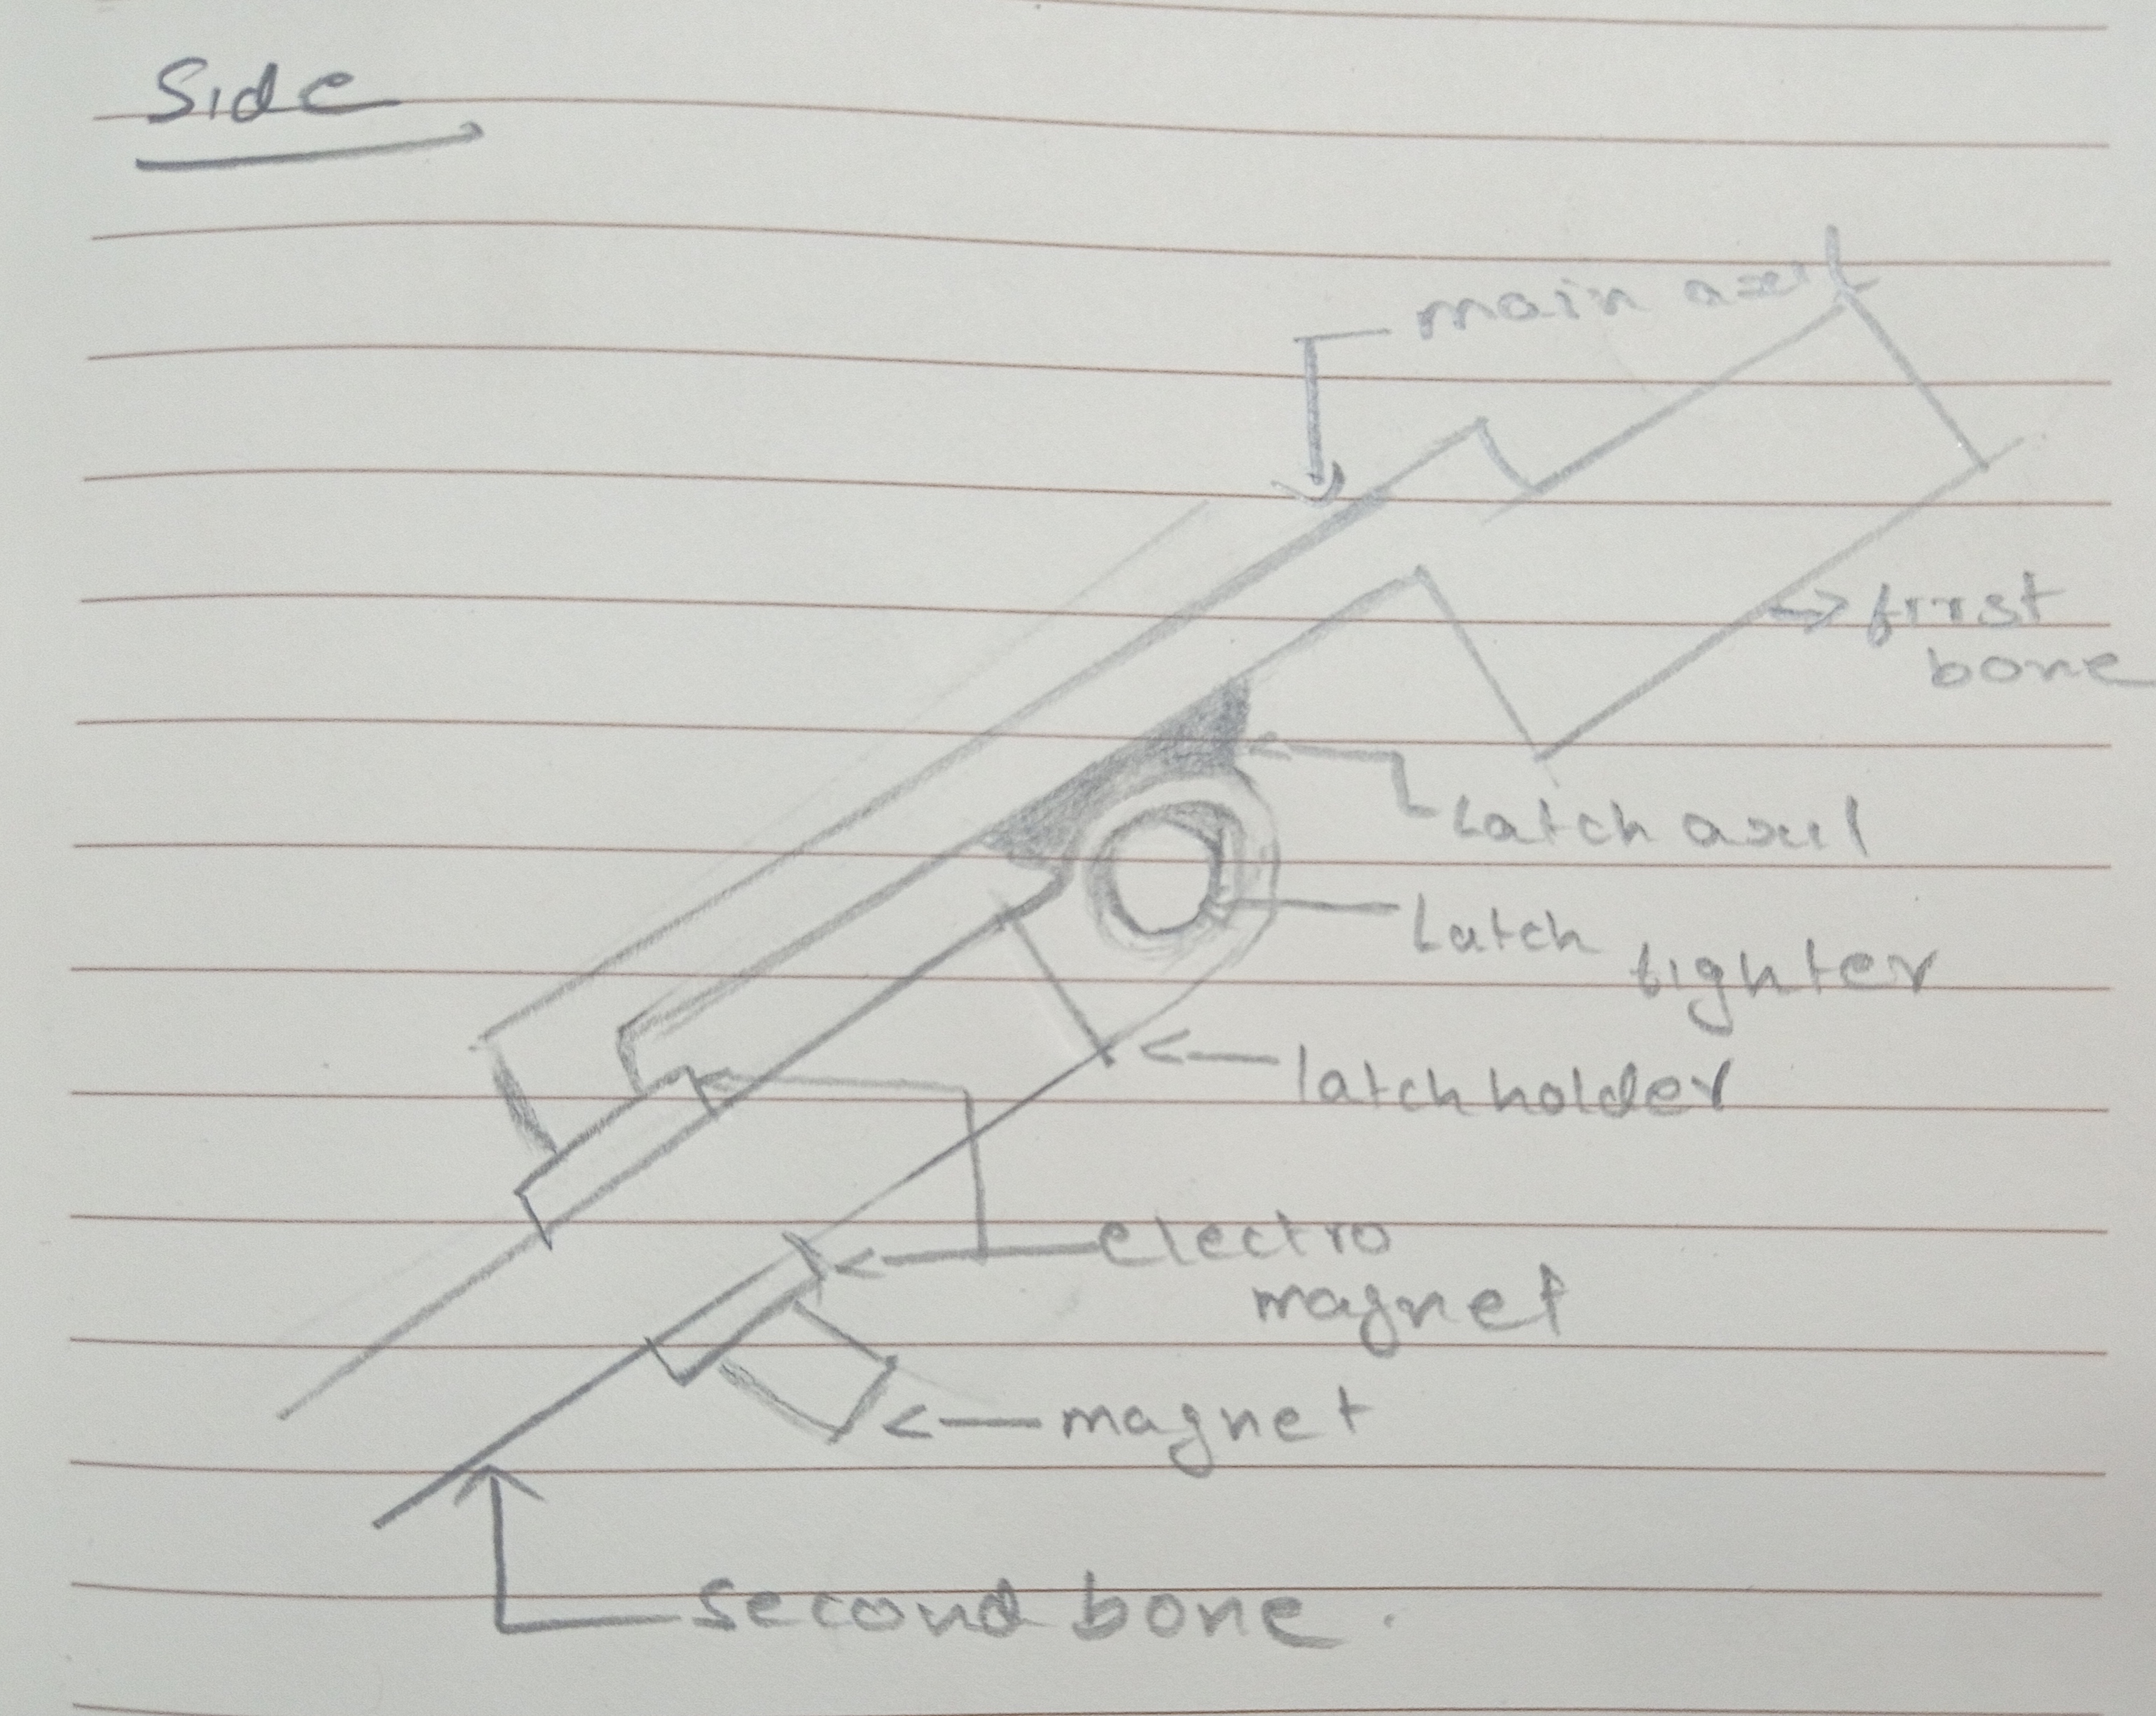 Side
main axel
first
bone
Latch axel
Latch tighter
latch holder
electro
magnet
magnet
second bone.